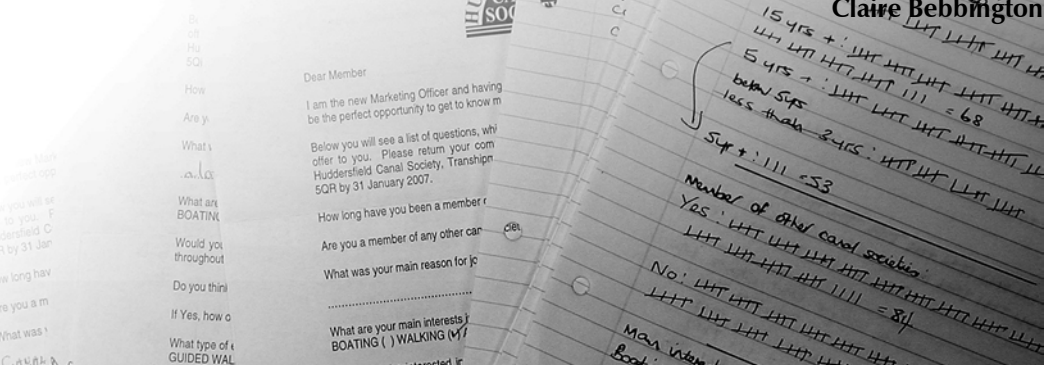 Claire Bebbington
HU
CA
SOC
Dear Member
I am the new Marketing Officer and having
be the perfect opportunity to get to know m
Below you will see a list of questions, whi
offer to you. Please return your com
Huddersfield Canal Society, Transhipm
5QR by 31 January 2007.
How long have you been a member
Are you a member of any other can
What was your main reason for jo
What are your main interests
BOATING ( ) WALKING (
Hu
5QI
How
Are y
What
What are
BOATING
Would you
throughout
Do you think
If Yes, how o
What type of e
GUIDED WAL
to you.
by 31 Jan
w long hav
re you a m
What was
15yrs + :
= 68
5yrs + :
below 5yrs
less than 3yrs :
5yr + : 111 = 53
Member of other canal societies:
Yes :
= 84
No :
Main intere
Boati